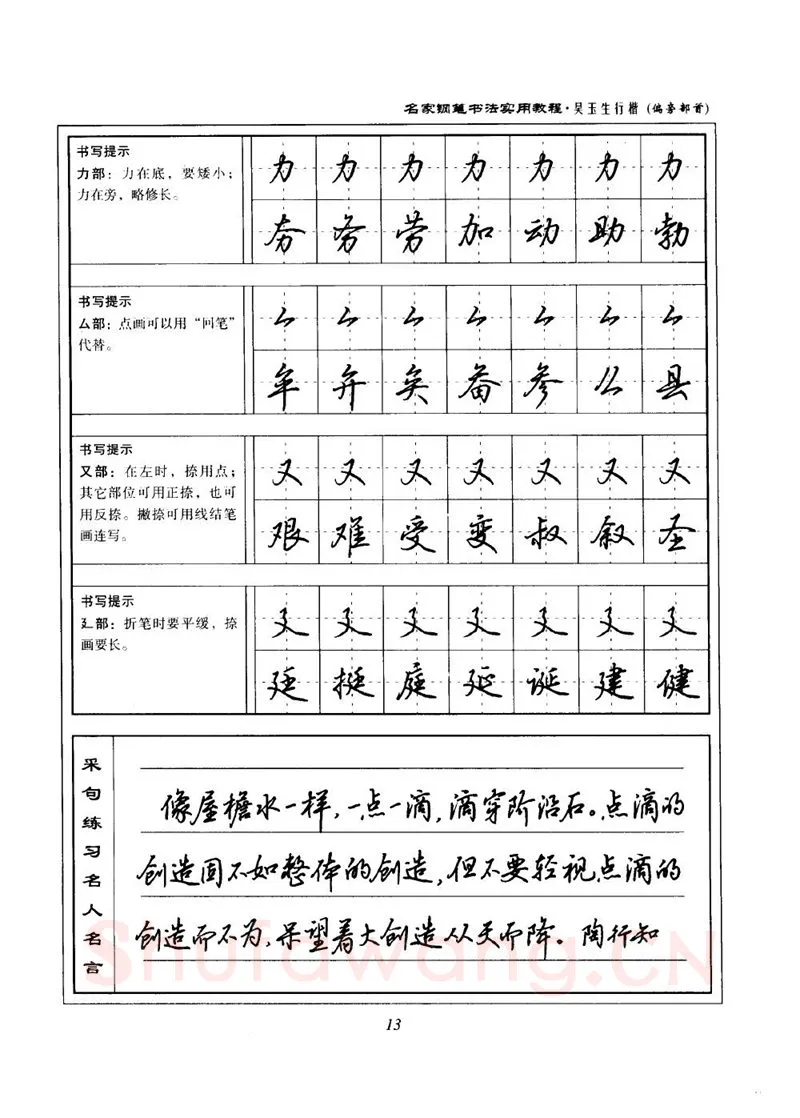 名家钢笔书法实用教程·吴玉生行楷(偏旁部首)
书写提示
力部：力在底，要矮小；
力在旁，略修长。
力 力 力 力 力 力 力
夯 务 劳 加 动 助 勃
书写提示
厶部：点画可以用“回笔”
代替。
厶 厶 厶 厶 厶 厶 厶
牟 弁 矣 畚 参 么 县
书写提示
又部：在左时，捺用点；
其它部位可用正捺，也可
用反捺。撇捺可用线结笔
画连写。
又 又 又 又 又 又 又
艰 难 受 变 叔 叙 圣
书写提示
廴部：折笔时要平缓，捺
画要长。
廴 廴 廴 廴 廴 廴 廴
廷 挺 庭 延 诞 建 健
采句练习名人名言
像屋檐水一样，一点一滴，滴穿阶沿石。点滴的
创造固不如整体的创造，但不要轻视点滴的
创造而不为，呆望着大创造从天而降。陶行知
Shufawang.CN
13